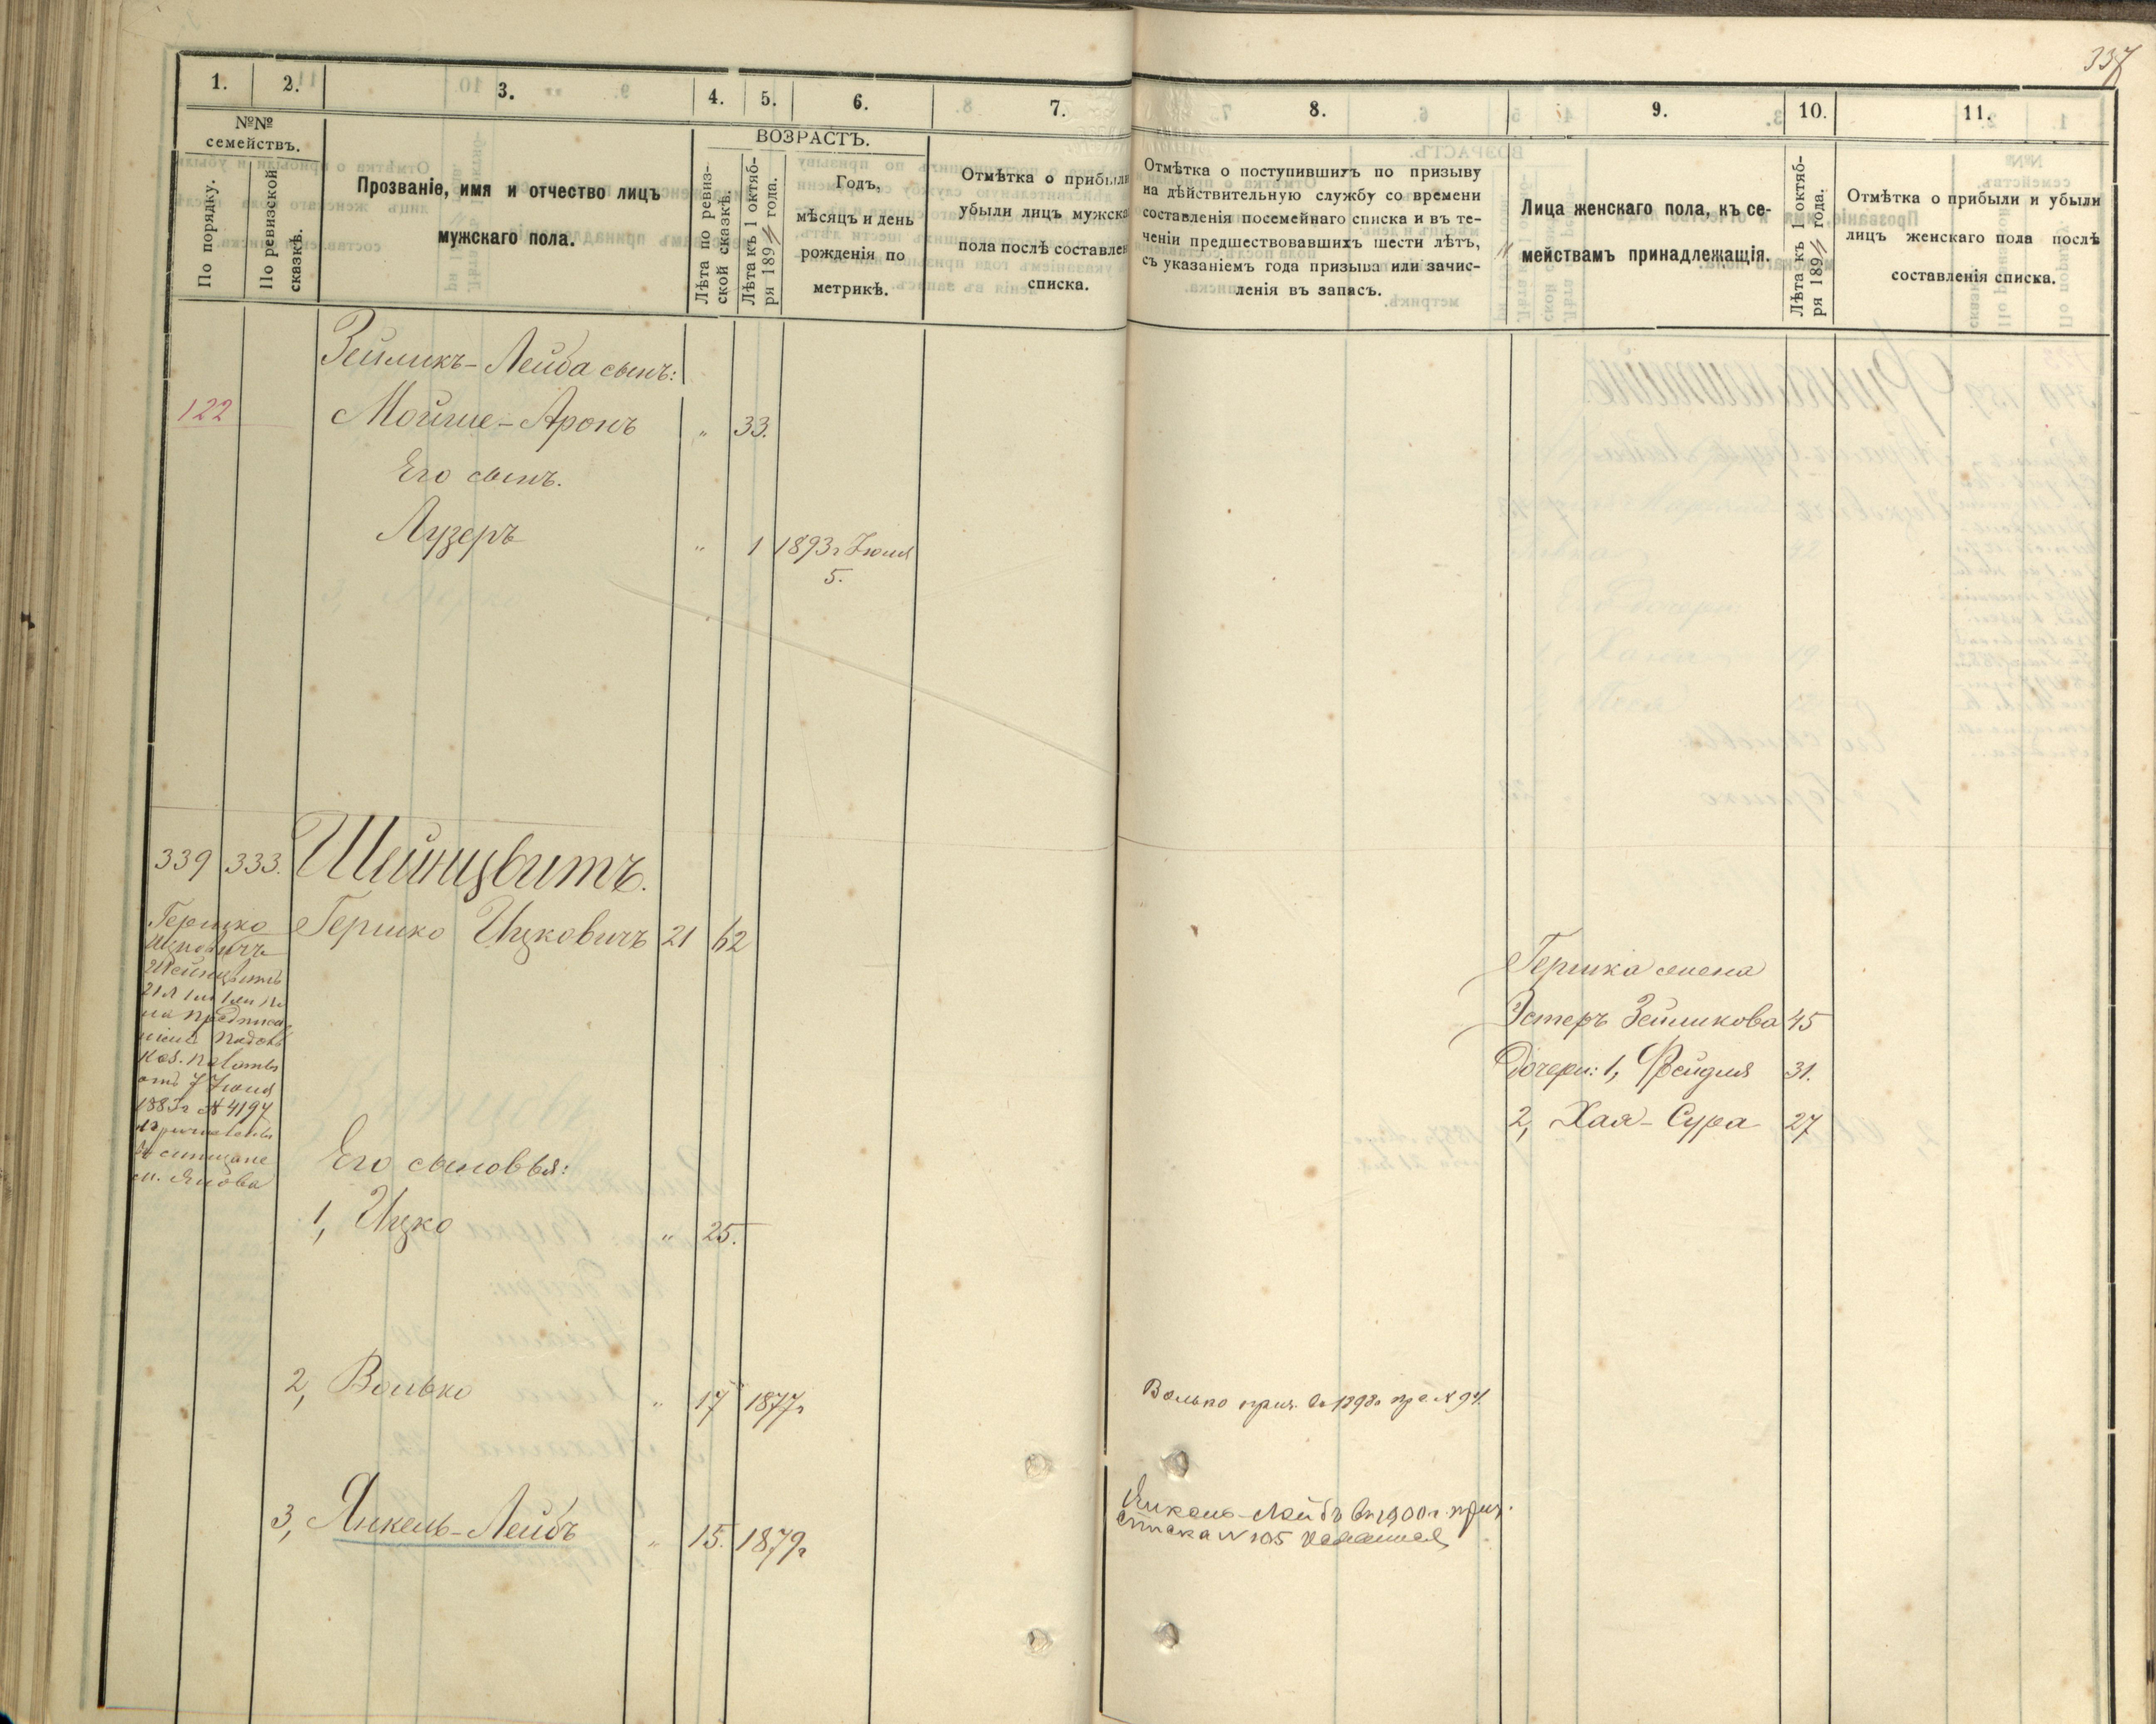 337
1.
2.
3.
4.
5.
6.
7.
№№ семействъ.
По порядку.
По ревизской сказкѣ.
Прозваніе, имя и отчество лицъ
мужскаго пола.
ВОЗРАСТЪ.
Лѣта по ревиз-
ской сказкѣ.
Лѣта къ 1 октяб-
ря 1894 года.
Годъ,
мѣсяцъ и день
рожденія по
метрикѣ.
Отмѣтка о прибыли
убыли лицъ мужска
пола послѣ составлен
списка.
8.
9.
10.
11.
Отмѣтка о поступившихъ по призыву
на дѣйствительную службу со времени
составленія посемейнаго списка и въ те-
ченіи предшествовавшихъ шести лѣтъ,
съ указаніемъ года призыва или зачис-
ленія въ запасъ.
Лица женскаго пола, къ се-
мействамъ принадлежащія.
Лѣта къ 1 октяб-
ря 1894 года.
Отмѣтка о прибыли и убыли
лицъ женскаго пола послѣ
составленія списка.
Зейликъ-Лейба сынъ:
122 Мойше-Аронъ " 33.
Его сынъ.
Лузеръ " 1 1893 г Іюля
5.
339 333. Шейнцвитъ.
Гершко Ицковичъ 21 62
Гершко
Ицковичъ
Шейнцвитъ
21 л
предписа
нія Подоль
Каз. Палаты
отъ 7 Іюля
1883 г № 4197
м. Янова
Его сыновья:
1, Ицко " 25.
2, Волько " 17 1877 г
3, Янкель-Лейбъ " 15. 1879 г
Волько приз. въ 1898 г пр. с. № 94.
Янкель-Лейбъ въ 1900 г. приз.
списка № 105
Гершка жена
Эстеръ Зейликова 45
Дочери: 1, Фейдля 31.
2, Хая-Сура 27